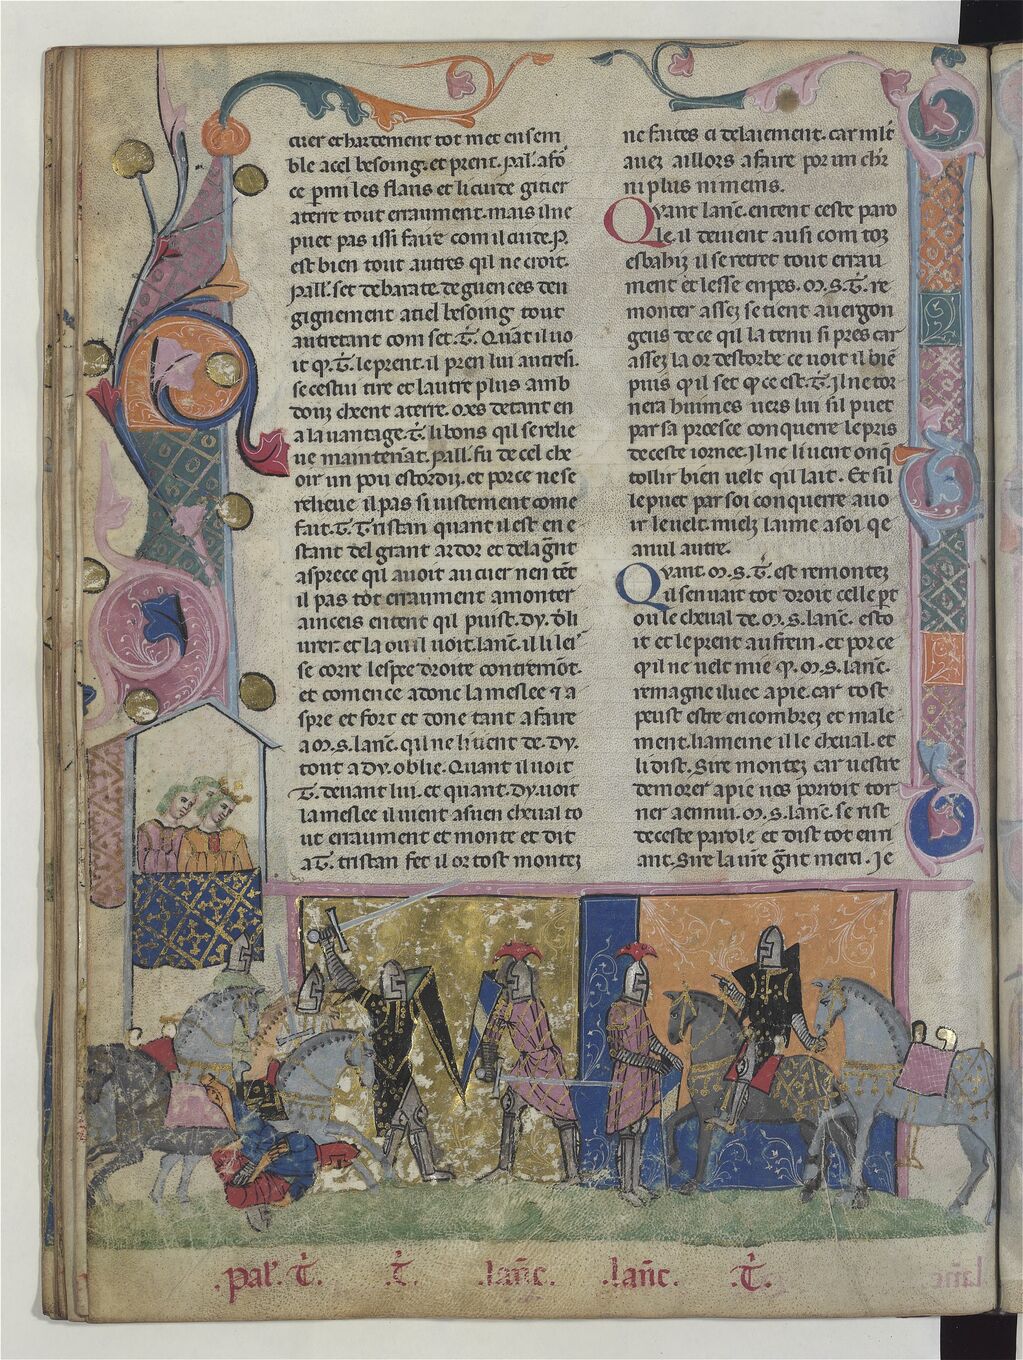 cuer et hardement tot met en sem
ble a cel besoing. et prent. pal'. a fo
ce p mi les flans et li cuide gitier
a terre tout erraument. mais il ne
puet pas issi faire com il cuide. P.
est bien tout autres q'l ne croit.
Pall'. set de barate. de guences den
gignement a tiel besoing tout
autretant com set. T. Quāt il uo
it q̄. T. le prent. il pren lui autresi.
se cestui tire et lautre plus amb
douz chient a terre. oxs de tant en
a la uantage. T. li bons q'l se relie
ue maintenāt. Pall'. fu de cel che
oir un pou estordiz. et por ce ne se
relieue il pas si uistement come
fait. T. Tristan quant il est en e
stant del grant ardor et de la g̃nt
asprece q'l auoit au cuer nen tēt
il pas tōt erraument a monter
ainceis entent q'l puist. Dy. d'li
urer. et la ou il uoit. lanc̄. il li lei'
se corre lespee droite contremōt.
et comence adonc la meslee ⁊ a
spre et fort et done tant a faire
a .m. s. lanc̄. q'l ne li uent de. Dy.
tout a Dy. oblie. Quant il uoit
T. deuant lui. et quant. Dy. uoit
la meslee il uient a sien cheual to
ut erraument et monte et dit
a T. tristan fet il or tost montez
ne faites ci delaiement. car mlt
auez aillors a faire por un ch'r
ni plus ni meins.
Quant lanc̄. entent ceste paro
le. il deuient ausi com toz
esbahiz il se retret tout errau
ment et lesse en pes. m. s. T. re
monter assez se tient a uergon
geus de ce q'l la tenu si pres car
assez la or destorbe ce uoit il biē
puis q'l set q̄ ce est. T. Il ne tor
nera huimes uers lui sil puet
par sa proesce conquerre le pris
de ceste iornee. Il ne li uent onq̄
tollir bien uelt q'l lait. Et sil
le puet par soi conquerre auo
ir le uelt. mielz laime a soi qe
a nul autre.
Quant. m. s. T. est remontez
il sen uait tot droit celle pt
ou le cheual de. m. s. lanc̄. esto
it et le prent au frein. et por ce
q'l ne uelt mie q̄. m. s. lanc̄.
remagne iluec a pie. car tost
peust estre encombrez et male
ment. li ameine il le cheual. et
li dist. Sire montez car uestre
demorer a pie uos porroit tor
ner a ennui. m. s. lanc̄. se rist
de ceste parole et dist tot enri
ant. Sire la u're g̃nt merci. Je
.pal'. T.
.T.
.lanc̄.
.lanc̄.
.T.
lanc̄